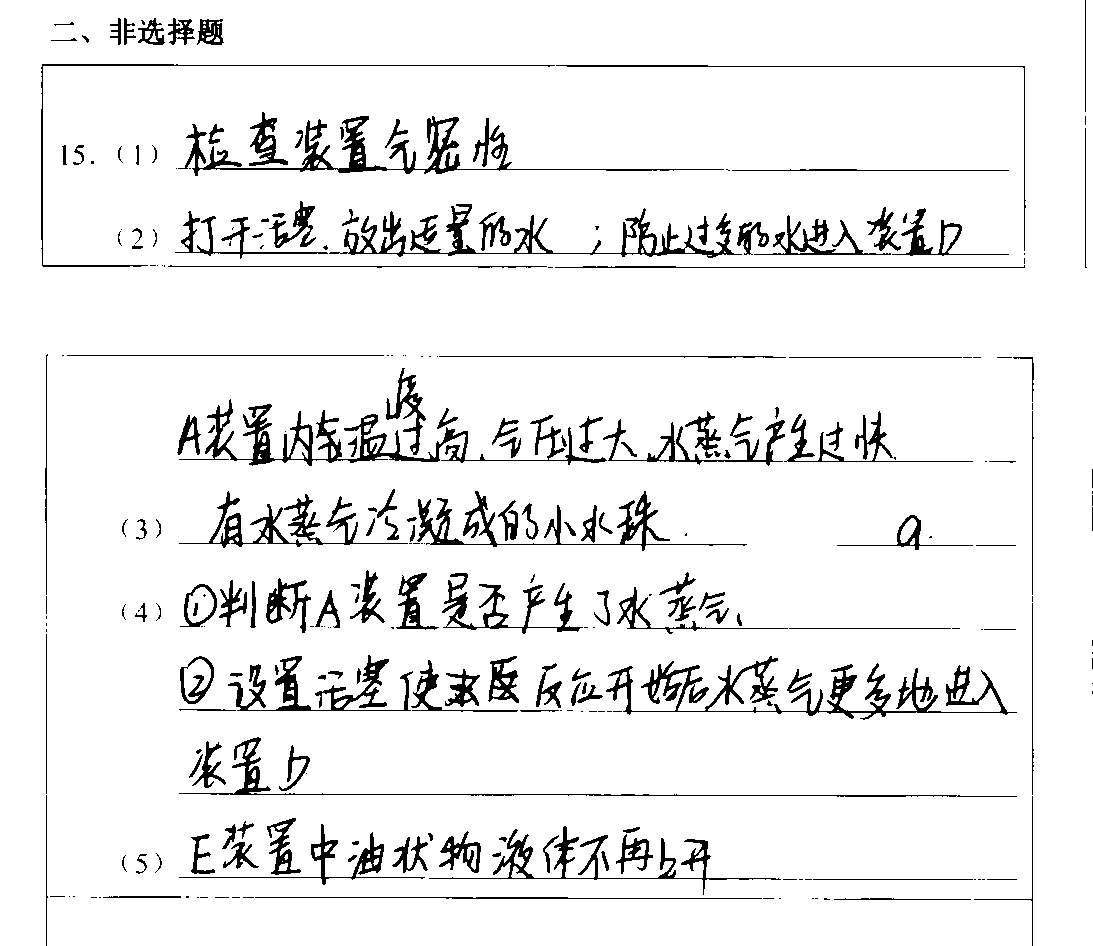 二、非选择题
15.（1）检查装置气密性
（2）打开活塞,放出适量的水 ;防止过多的水进入装置D
A装置内部温度过高,气压过大,水蒸气产生过快
（3）有水蒸气冷凝成的小水珠. a.
（4）①判断A装置是否产生了水蒸气、
②设置活塞使 反应开始后水蒸气更多地进入
装置D
（5）E装置中油状物液体不再上升